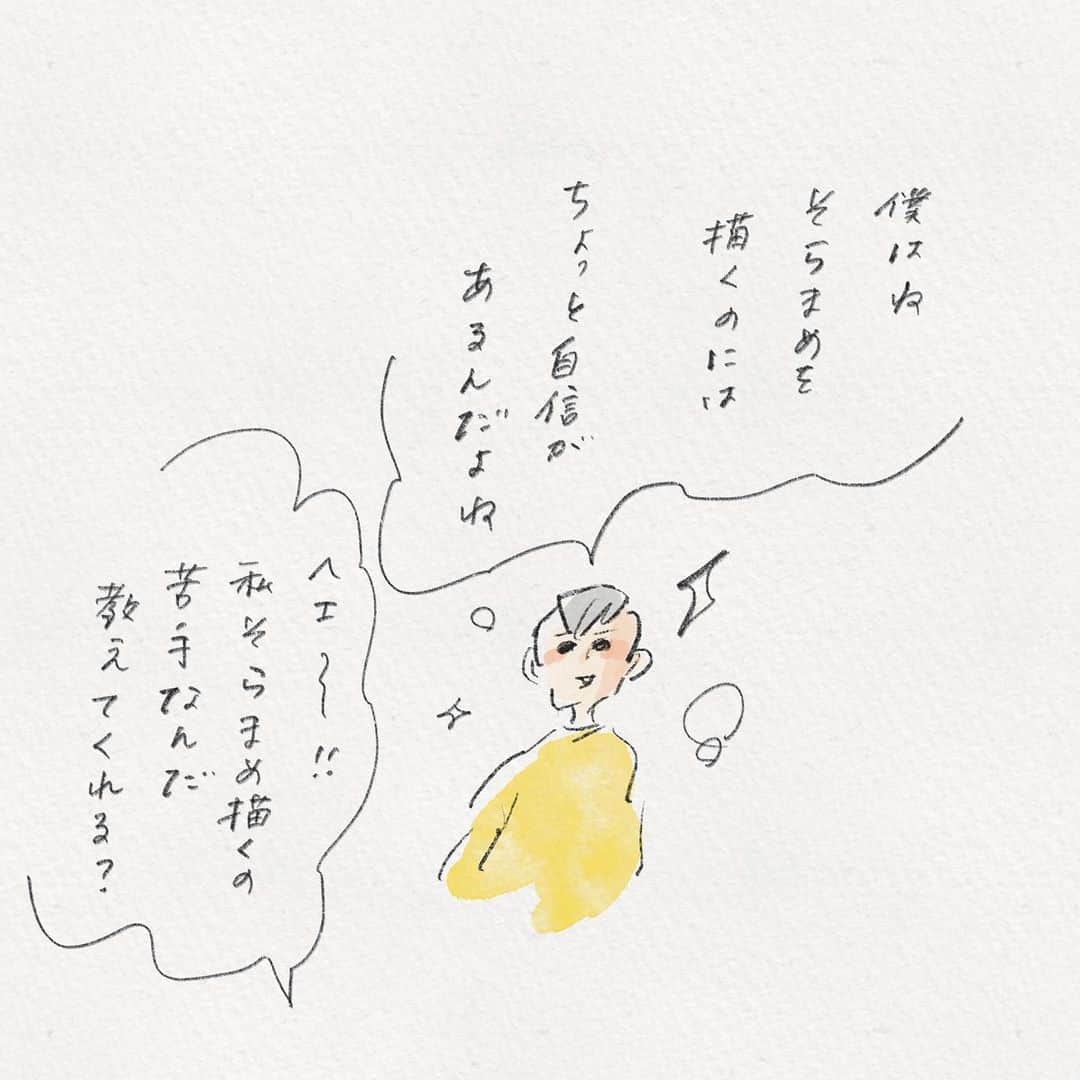 僕はね
そらまめを
描くのには
ちょっと自信が
あるんだよね
ヘエ〜〜!!
私そらまめ描くの
苦手なんだ
教えてくれる?